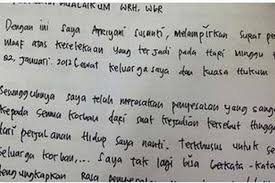 WRH. WBR
Dengan ini saya Apriyani Susanti, melampirkan surat per
MAAF atas kecelakaan yang terjadi pada Hari minggu
22. Januari. 2012 Lewat keluarga saya dan kuasa Hukum
Sesungguhnya saya telah merasakan penyesalan yang sang
kepada semua korban dari saat kejadian tersebut Hingga
dari perjalanan Hidup saya nanti. Terkhusus untuk se
keluarga korban... saya tak lagi bisa berkata-kata
mengungkapkan Rasa